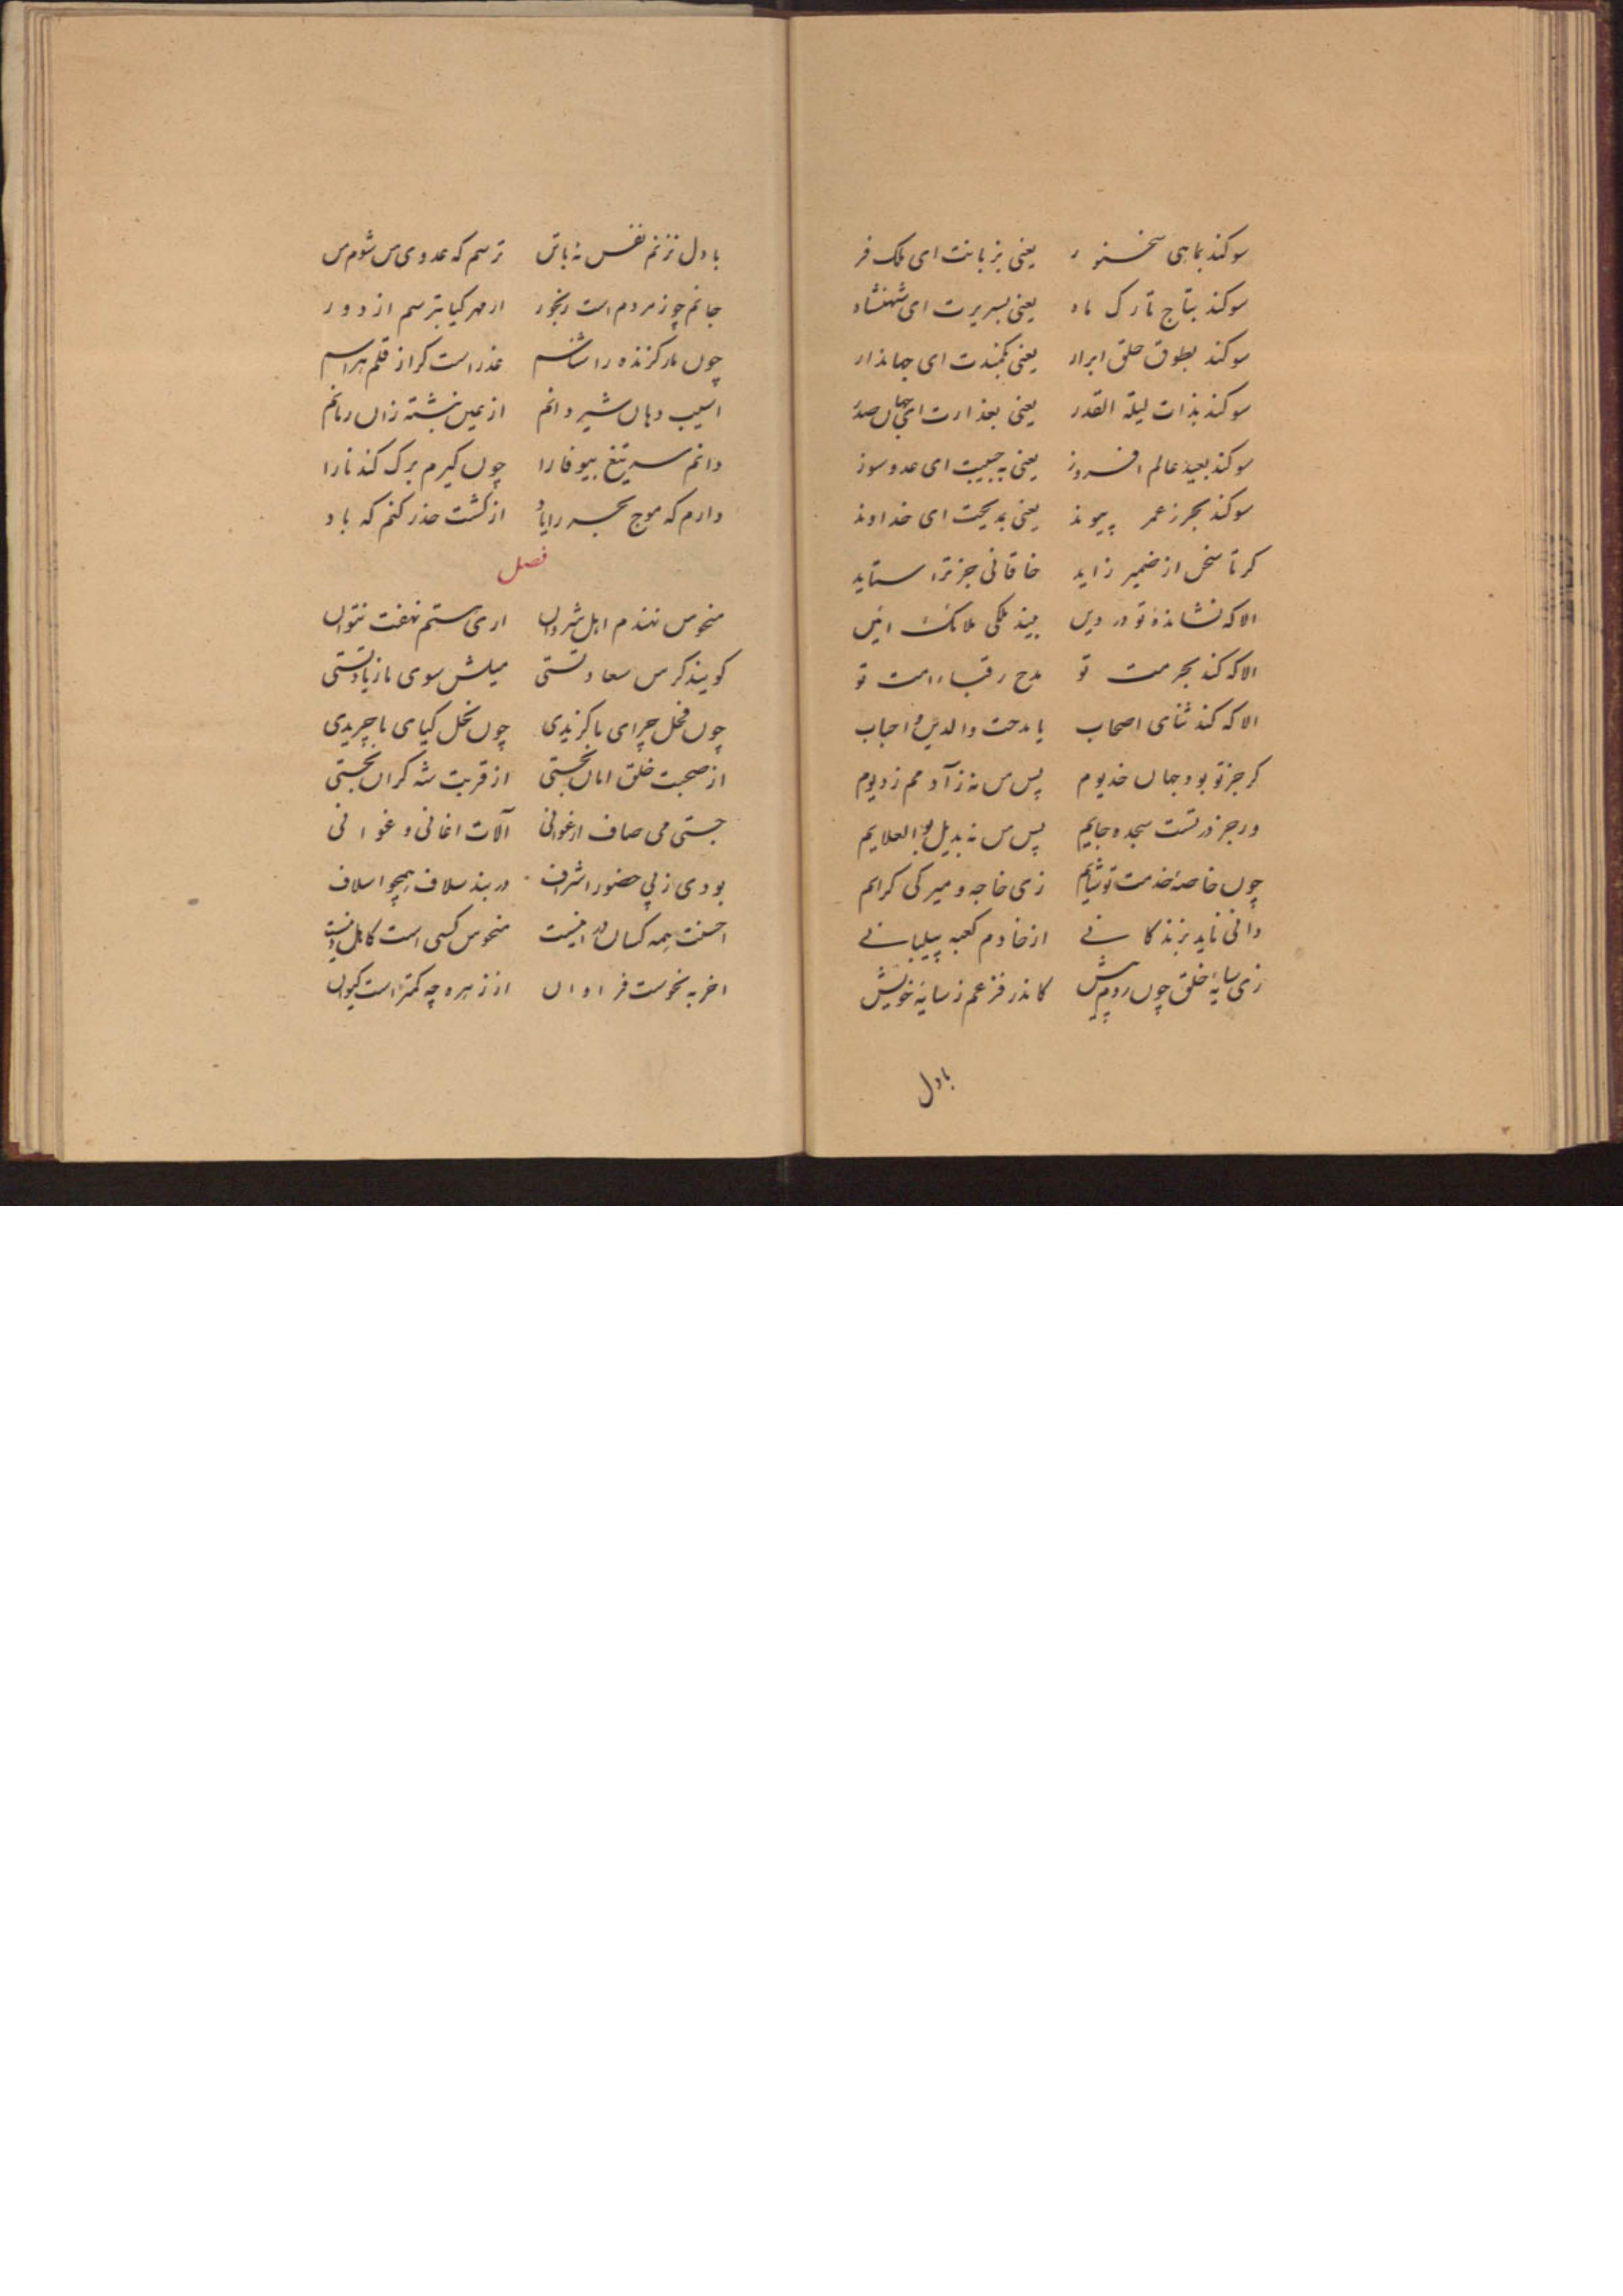 سوکند بماهی سخنور یعنی بزبانت ای ملک فر
سوکند بتاج تارک ماه یعنی بسریرت ای شهنشاه
سوکند بطوق حلق ابرار یعنی بکمندت ای جهاندار
سوکند بذات لیلة القدر یعنی بعذارت ای جهان صدر
سوکند بعید عالم افروز یعنی به جبیبت ای عدو سوز
سوکند بحرز عمر پیوند یعنی بمدیحت ای خداوند
کر تا سخن از ضمیر زاید خاقانی جز ترا ستاید
الا که نشانده تو در دین بیند ملکی ملائک ایین
الا که کند بحرمت تو مدح رقباء امت تو
الا که کند ثنای اصحاب یا مدحت والدین و احباب
کر جز تو بود جان خدیوم پس من نه ز آدمم ز دیوم
ور جز در تست سجده جایم پس من نه بدیل بو العلایم
چون خاصه خدمت تو شایم زی خاجه و میر کی کرایم
دانی ناید بزندکانی از خادم کعبه پیلبانی
زی سایه خلق چون روم پیش کاندر فزعم ز سایه خویش
بادل
بادل نزنم نفس نه با تن ترسم که عدوی من شوم من
جانم چو ز مردم است رنجور از مهر کیا بترسم از دور
چون مار کزنده را شناسم عذر است کر از قلم هراسم
اسیب دهان شیر دانم از نبشته زان رمانم
دانم سر تیغ بیوفا را چون کیرم برک کندنا را
دارم که موج بحر را یاد از کشت حذر کنم که باد
فصل
منحوس نهندم اهل شروان اری ستم نهفت نتوان
کویند کر من سعادتستی میلش سوی ما زیادتستی
چون فحل چرای ما کزیدی چون نحل کیای ما چریدی
از صحبت خلق امان نجستی از قربت شه کران نجستی
جستی می صاف ارغوانی آلات اغانی و غوانی
بودی ز پی حضور اشراف در بند سلاف همچو اسلاف
احسنت همه کسان در اینست منحوس کسی است کاهل دینست
اخر به نحوست فراوان از زهره چه کمتر است کیوان